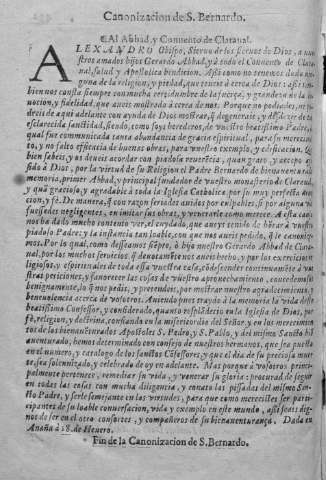 Canonizacion de S. Bernardo.
Al Abbad, y Conuento de Claraual.
ALEXANDRO Obispo, Sieruo de los sieruos de Dios, a nuestros
amados hijos Gerardo Abbad, y a todo el Conuento de Claraual,
salud y Apostolica bendicion. Assi como no tenemos duda
de la religion, y piedad, que teneis a cerca de Dios: assi
bien nos consta siempre con mucha
y fidelidad, que aueis mostrado a cerca de nos. Porque no
de aqui adelante con ayuda de Dios mostrar,
esclarecida santidad, siendo, como soys herederos, de vuestro beatissimo Padre,
qual fue communicada tanta abundancia de gracia spiritual, para su
y no falto efficacia de buenas obras, para vuestro exemplo, y edificacion.
bien sabeis, y os deueis acordar con piadosa reuerencia, quan grato, y
sido à Dios, por la virtud de su Religion el Padre Bernardo de bienauenturada
memoria, primer Abbad, y principal fundador de vuestro monasterio de Claraual,
y quã gracioso, y agradable à toda la Iglesia Catholica por su muy perfecta
y fè. De manera, q̃ con razon seriades auidos por culpables, si por alguna
fuessedes negligentes, en imitar sus obras, y venerarle como merece. A esta
nos ha dado mucho contento ver el cuydado, que aueys tenido de honrar à vuestro
piadoso Padre; y la instancia tan loable, con que nos aueis pedido, q̃ le canonizemos.
Por lo qual, como desseamos siẽpre, ò hijo nuestro Gerardo Abbad de Claraual,
por los muchos seruicios, q̃ deuotamẽte nos aueis hecho, y por los exercicios
religiosos, y espirituales de toda essa vuestra casa, cõdescender constantemẽte à
vuestras peticiones, y fauorecer las cosas de vuestro aprouechamiento,
benignamente, lo q̃ nos pedis, y pretendeis, por mostrar nuestro agradecimiento, y
beneuolencia acerca de vosotros. Auiendo pues traydo à la memoria la vida deste
beatissimo Confessor, y considerando, quanto resplãdecio en la Iglesia de Dios, por
fè, religion, y doctrina, confiando en la misericordia del Señor, y en los merecimientos
de los bienauenturados Apostoles S. Pedro, y S. Pablo, y del mismo Sancto
bienauenturado, hemos determinado con consejo de nuestros hermanos, que sea puesto
en el numero, y catalogo de los sanctos Cõfessores, y que el dia de su preciosa muerte
sea solemnizado, y celebrado de oy en adelante. Mas porque à vosotros principalmente
pertenece, remedar su vida, y venerar su gloria: procurad de seguir
en todas las cosas con mucha diligencia, y conato las pissadas del mismo Sancto
Padre, y serle semejantes en las virtudes, para que como mereceis ser participantes
de su loable conuersacion, vida y exemplo en este mundo, assi seais dignos
de ser en el otro consortes, y compañeros de su bienauenturança. Dada en
Anania à 18. de Henero.
Fin de la Canonizacion de S. Bernardo.